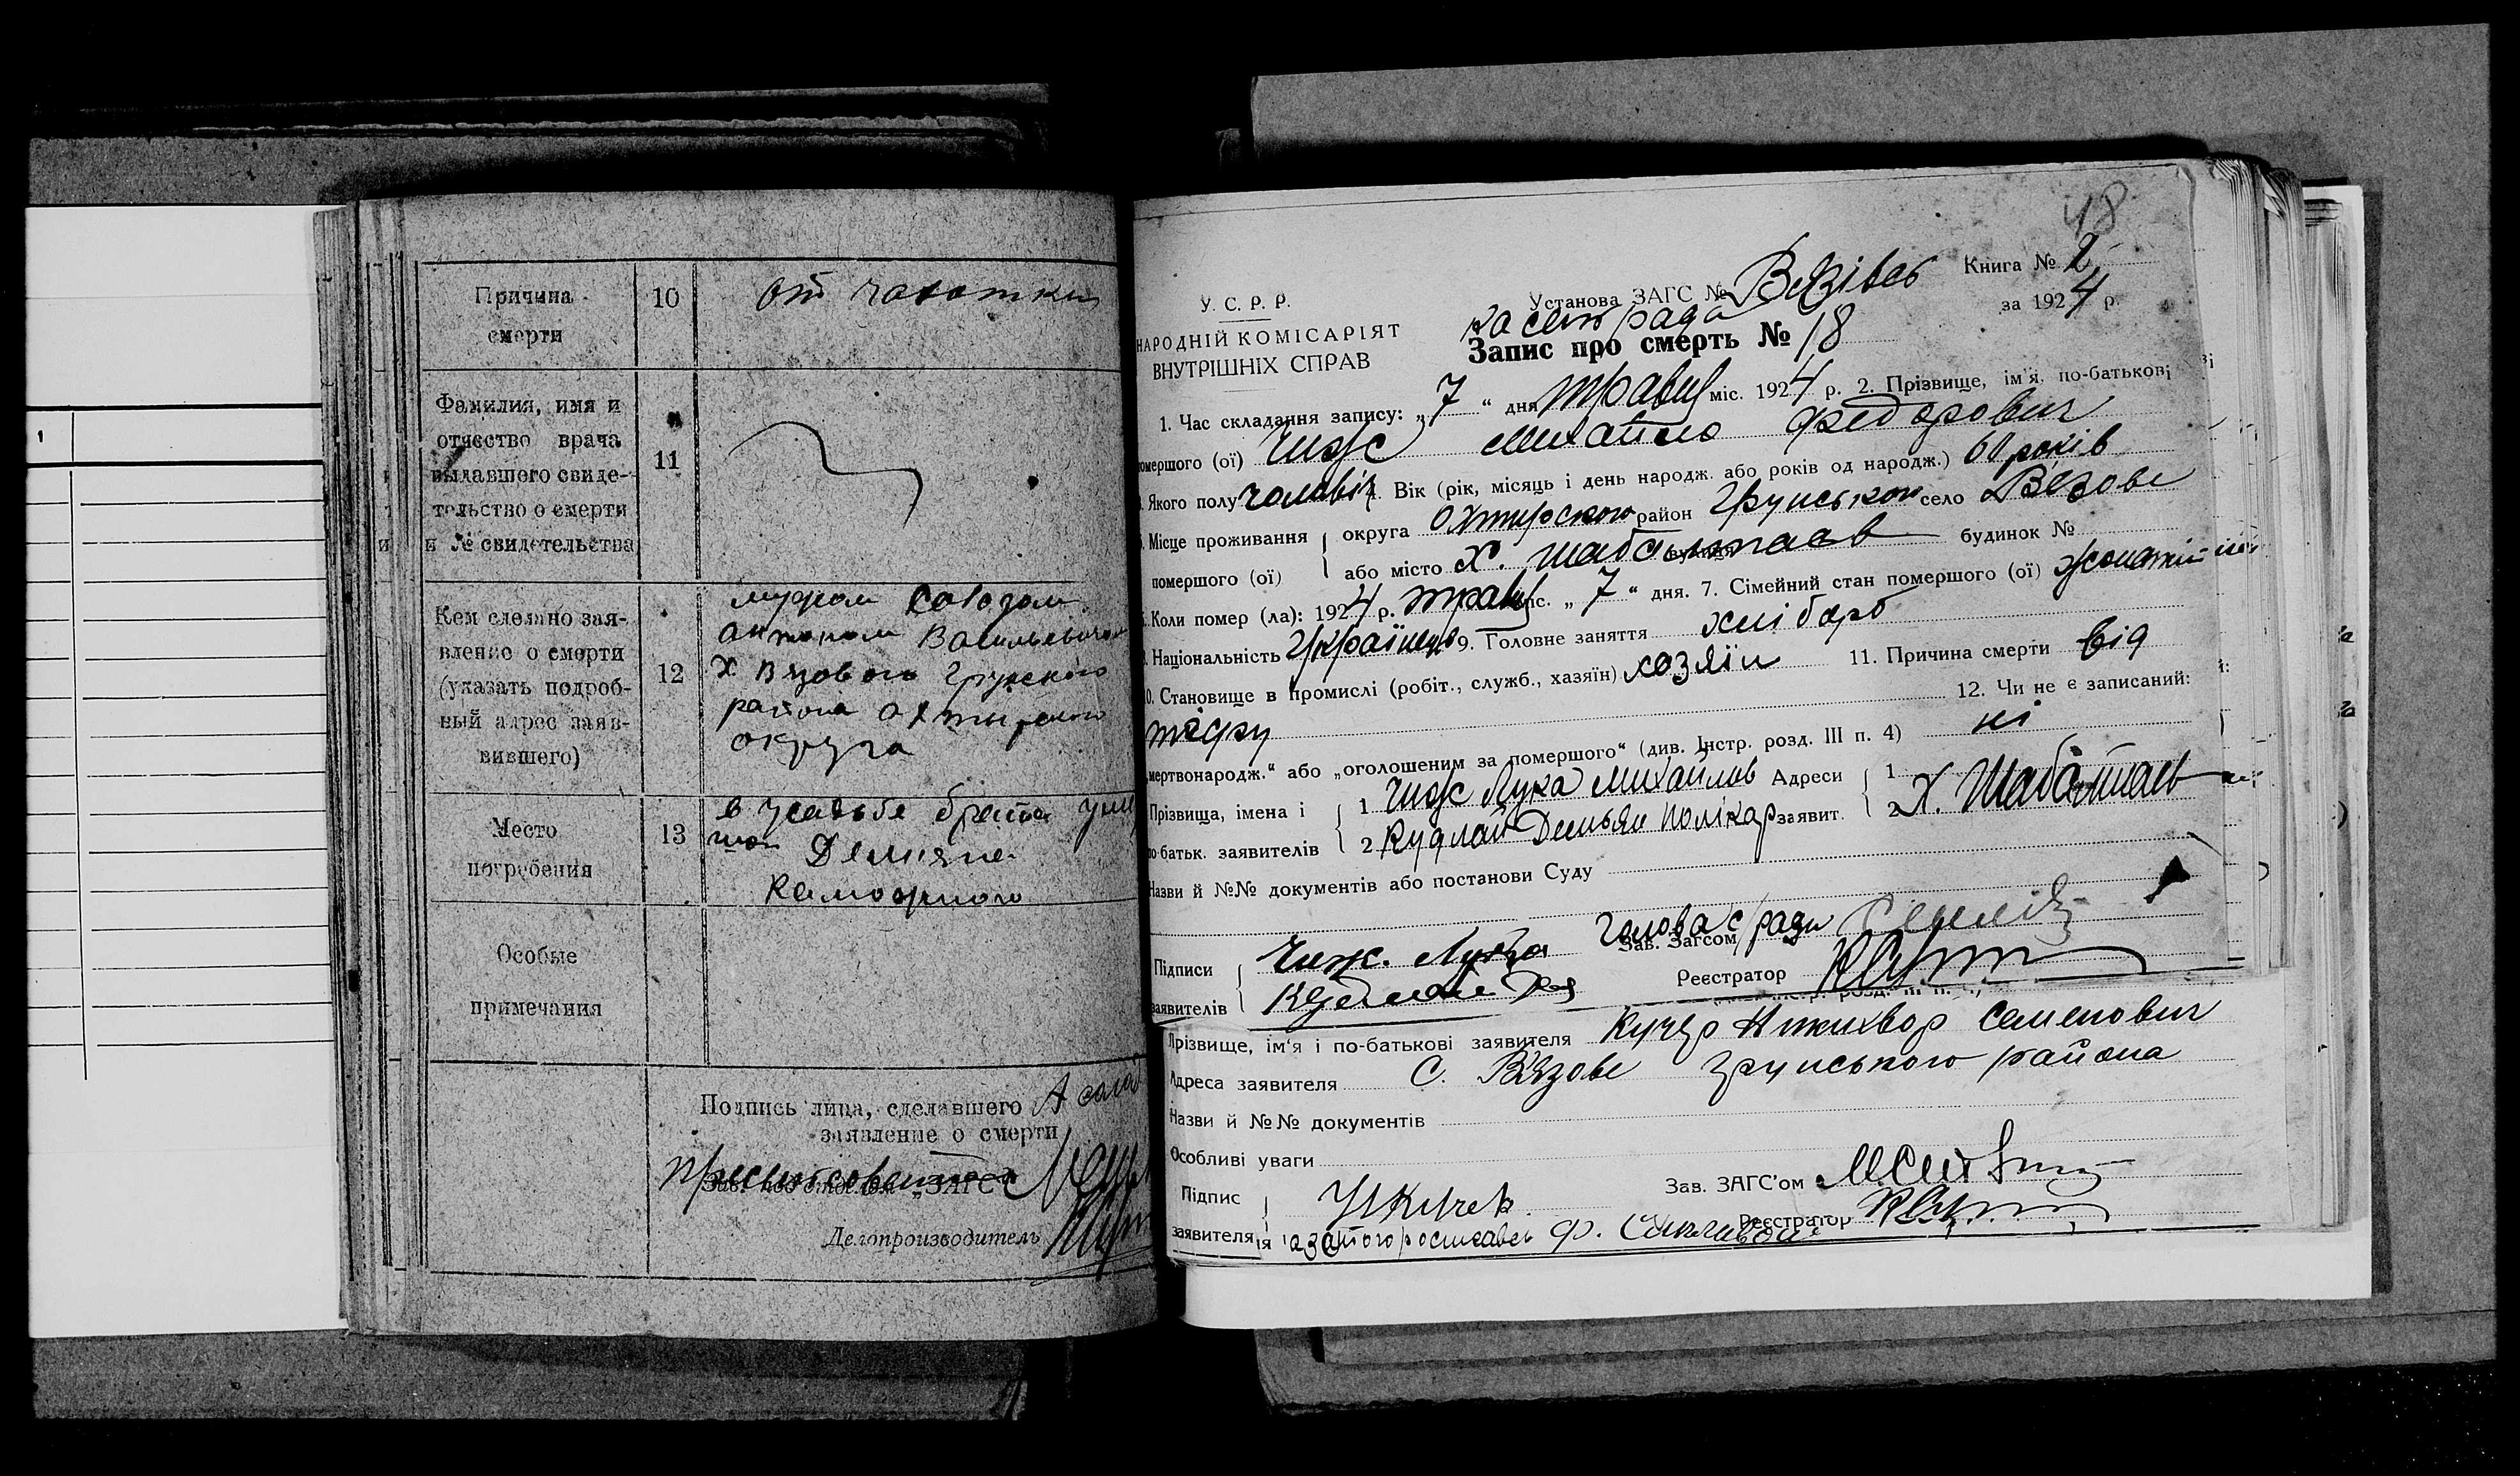 1
Причина
смерти
10
от чахотки
Фамилия, имя и
отчество врача
выдавшего свиде-
тельство о смерти
и № свидетельства
11
Кем сделано зая-
вление о смерти
(указать подроб-
ный адрес заяв-
вившего)
12
мужом
Антоном Васильевичом
Х Вязового Грунского
района Ахтырского
округа
Место
погребения
13
в усадьбе брата
Демяна
Особые
примечания
Подпись лица, сделавшего
заявление о смерти
Зав. под'отделом „ЗАГС"
Делопроизводитель
48
У. С. Р. Р.
НАРОДНІЙ КОМІСАРІЯТ
ВНУТРІШНІХ СПРАВ
Установа ЗАГС № Вязівсь
ка сель рада
Книга № 2
за 1924 р.
Запис про смерть № 18
1. Час складання запису: „7" дня травня міс. 1924 р. 2. Прізвище, ім'я, по-батькові
помершого (ої) Чиж Михайло Федорович
Якого полу чоловік 4. Вік (рік, місяць і день народж. або років од народж.) 60 років
Місце проживання
помершого (ої)
округа Охтирського район Грунською село Вязове
або місто Х. Шабалтаєв будинок №
Коли помер (ла): 1924 р. травня міс. „7" дня. 7. Сімейний стан помершого (ої) жонатий
Національність Українець 9. Головне заняття хлібороб
10. Становище в промислі (робіт., служб., хазяїн) хозяїн 11. Причина смерти від
тифу 12. Чи не є записаний:
„мертвонародж." або „оголошеним за помершого" (див. Інстр. розд. III п. 4) ні
Прізвища, імена і
по-батьк. заявителів
1 Чиж Лука Михайлов
2 Кудлай Демьян Полікар
Адреси
заявит.
1
2 Х. Шабалтаєв
Назви й №№ документів або постанови Суду
Голова с/ради
Зав. Загсом
Підписи
заявителів
Чиж. Лука
Кудлай
Реєстратор
Прізвище, ім'я і по-батькові заявителя Кучер Никихвор Семенович
Адреса заявителя С. Вязове Грунського района
Назви й №№ документів
Особливі уваги
Підпис
заявителя
Н Кучер
Зав. ЗАГС'ом
Реєстратор